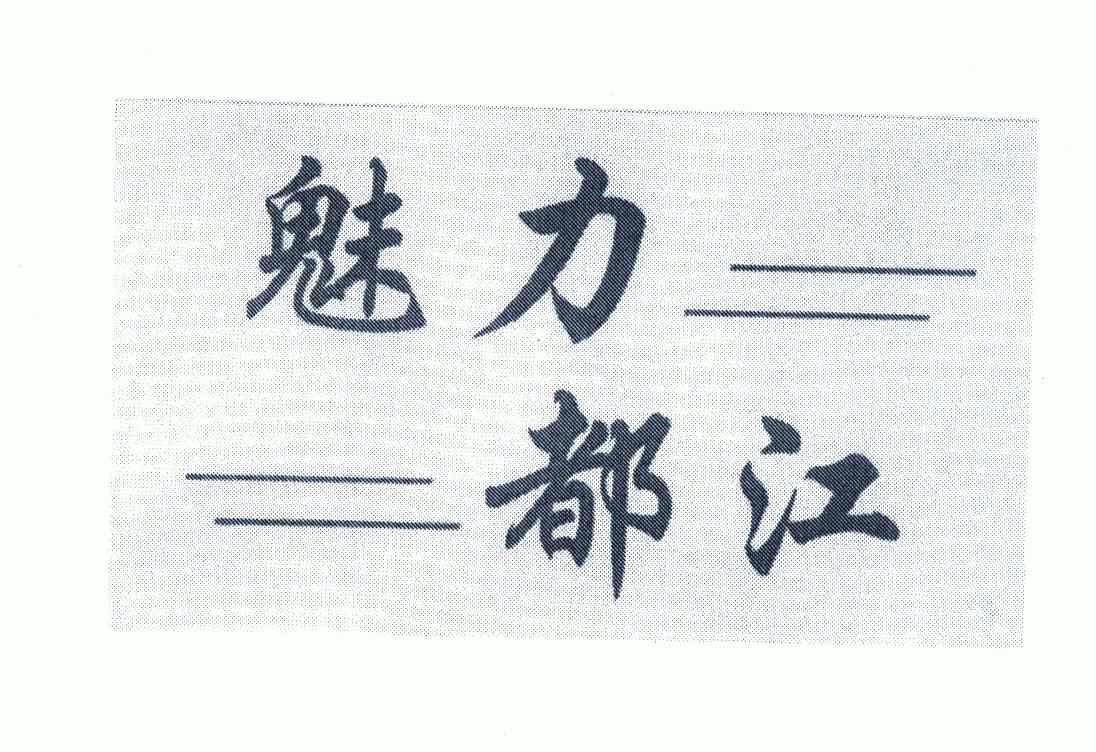 魅力
都江